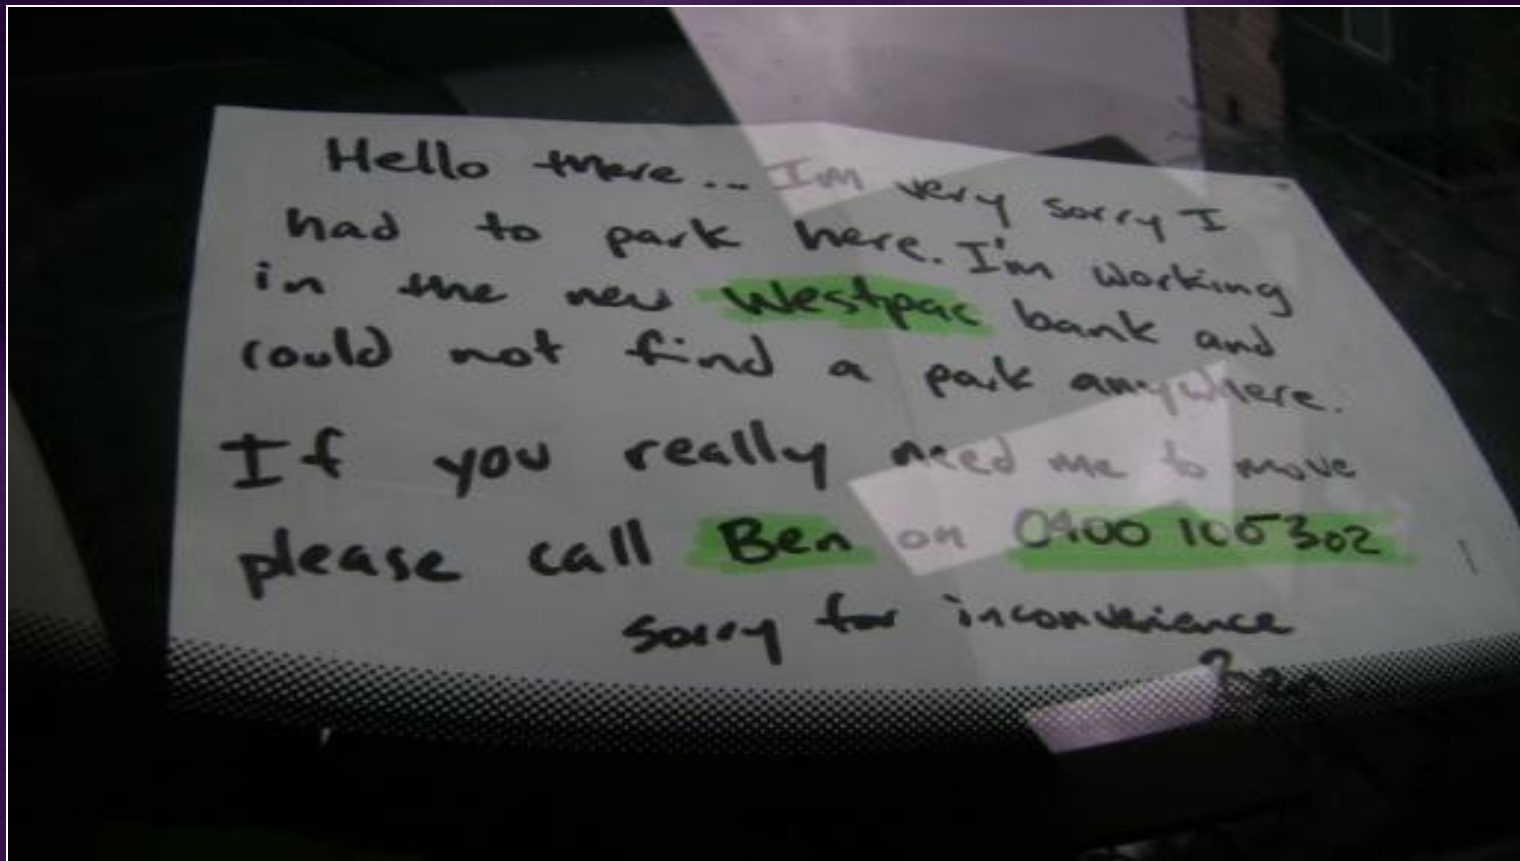 Hello there... I'm very sorry I
had to park here. I'm working
in the new Westpac bank and
could not find a park anywhere.
If you really need me to move
please call Ben on 0400 105 302
sorry for inconvenience
Ben